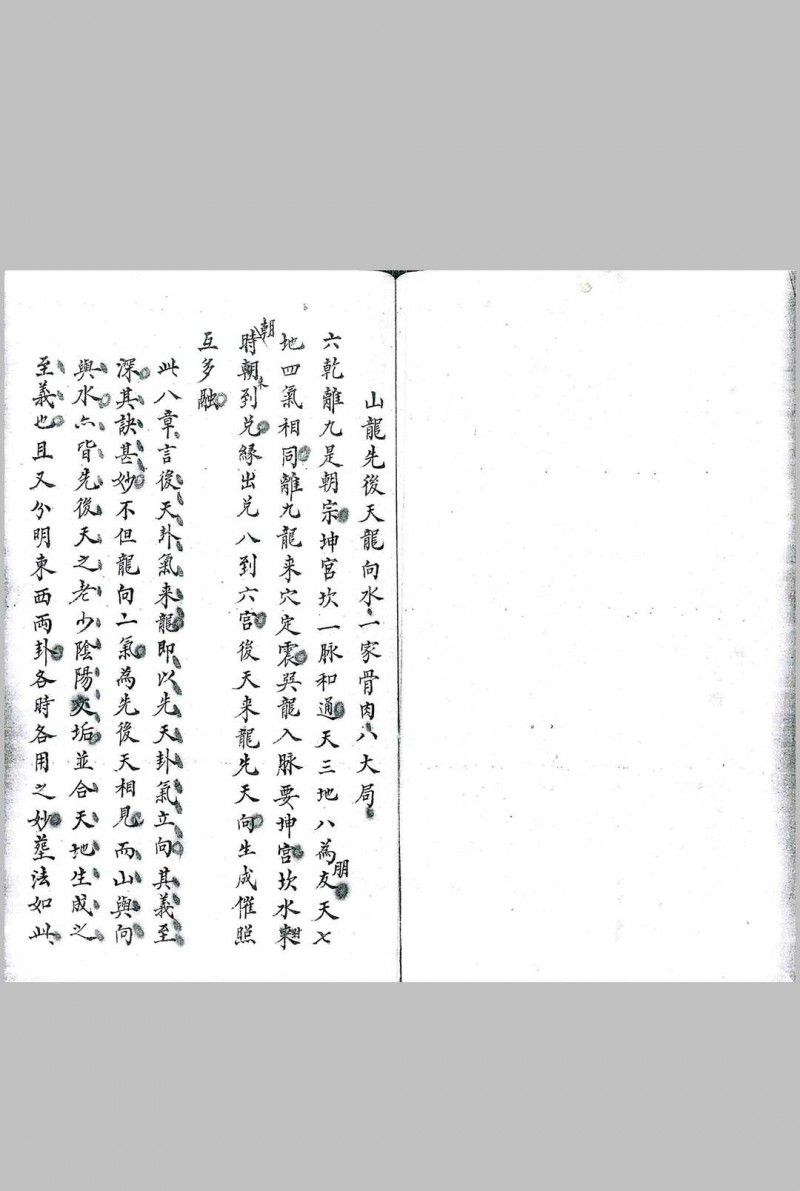 山龍先後天龍向水一家骨肉八大局
六乾離九是朝宗坤宮坎一脉和通天三地八為友朋天七
地四氣相同離九龍来穴定震巽龍入脉要坤宮坎水来
時朝朝来到兑緣出兑八到六宮後天来龍先天向生成催照
互多融
此八章言後天卦氣来龍即以先天卦氣立向其義至
深其訣甚妙不但龍向二氣為先後天相見而山與向
與水亦皆先後天之老少陰陽交垢並合天地生成之
至義也且又分明東西兩卦各時各用之妙塟法如此